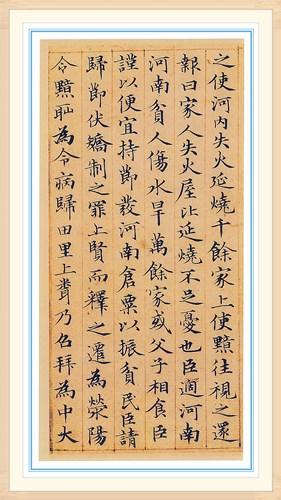 之使河內失火延燒千餘家上使黯往視之還
報曰家人失火屋比延燒不足憂也臣適河南
河南貧人傷水旱萬餘家或父子相食臣
謹以便宜持節發河南倉粟以振貧民臣請
歸節伏矯制之罪上賢而釋之遷為滎陽
令黯恥為令病歸田里上聞乃召拜為中大